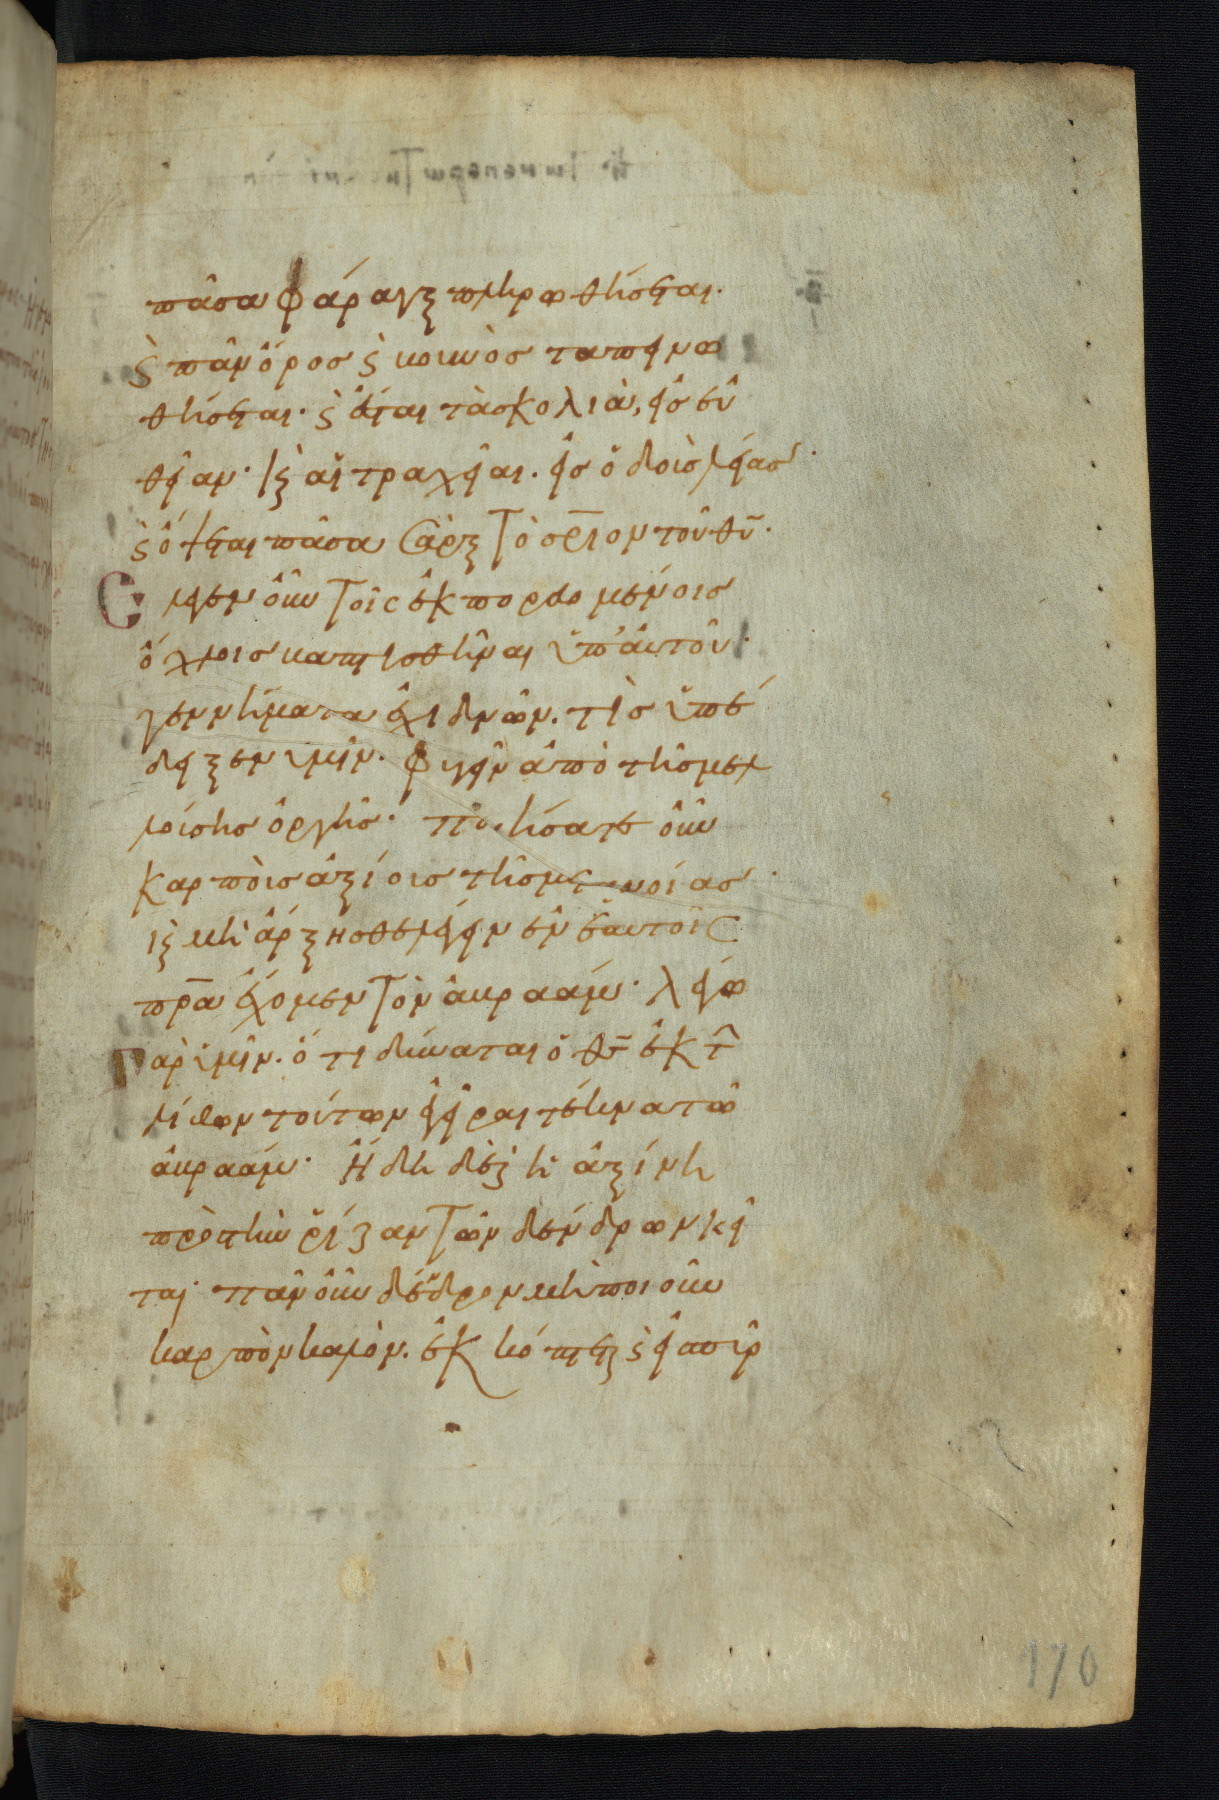 πᾶσα φάραγξ πληρωθήσεται.
ϛ πᾶν ὄρος ϛ βουνὸσ ταπεινω
θήσεται· ϛ ἔσται τὰ σκολιὰ, εἰσ εὐ
θεῖαν· ϛ αἱ τραχεῖαι. εἰσ ὁδοὺσ λείασ·
ϛ ὄψεται πᾶσα σὰρξ τὸ σρ̅ιον τοῦ θυ̅·
Ελεγεν οὖν τοῖς ἐκπορευομένοισ
ὄχλοισ βαπτισθῆναι ὑπ' αὐτοῦ·
γεννήματα ἐχιδνῶν. τίσ ὑπέ
δειξεν ὑμῖν. φυγεῖν ἀπὸ τῆσ μελ
λούσησ ὀργῆσ· ποιήσατε οὖν
καρποὺσ ἀξίουσ τῆσ μετανοίασ·
ϛ μὴ ἄρξησθε λέγειν ἐν ἑαυτοῖς
πρ̅α ἔχομεν τὸν ἀβραάμ· λέγω
γὰρ ὑμῖν. ὅτι δύναται ὁ θσ̅ ἐκ τῶ
λίθων τούτων ἐγεῖραι τέκνα τῶ
ἀβραάμ· ἤδη δὲ ϛ ἡ ἀξίνη
πρὸσ τὴν ῥίζαν τῶν δένδρων κεῖ
ται· πᾶν οὖν δένδρον μὴ ποιοῦν
καρπὸν καλὸν. ἐκκόπτεται ϛ εἰσ πῦρ
170